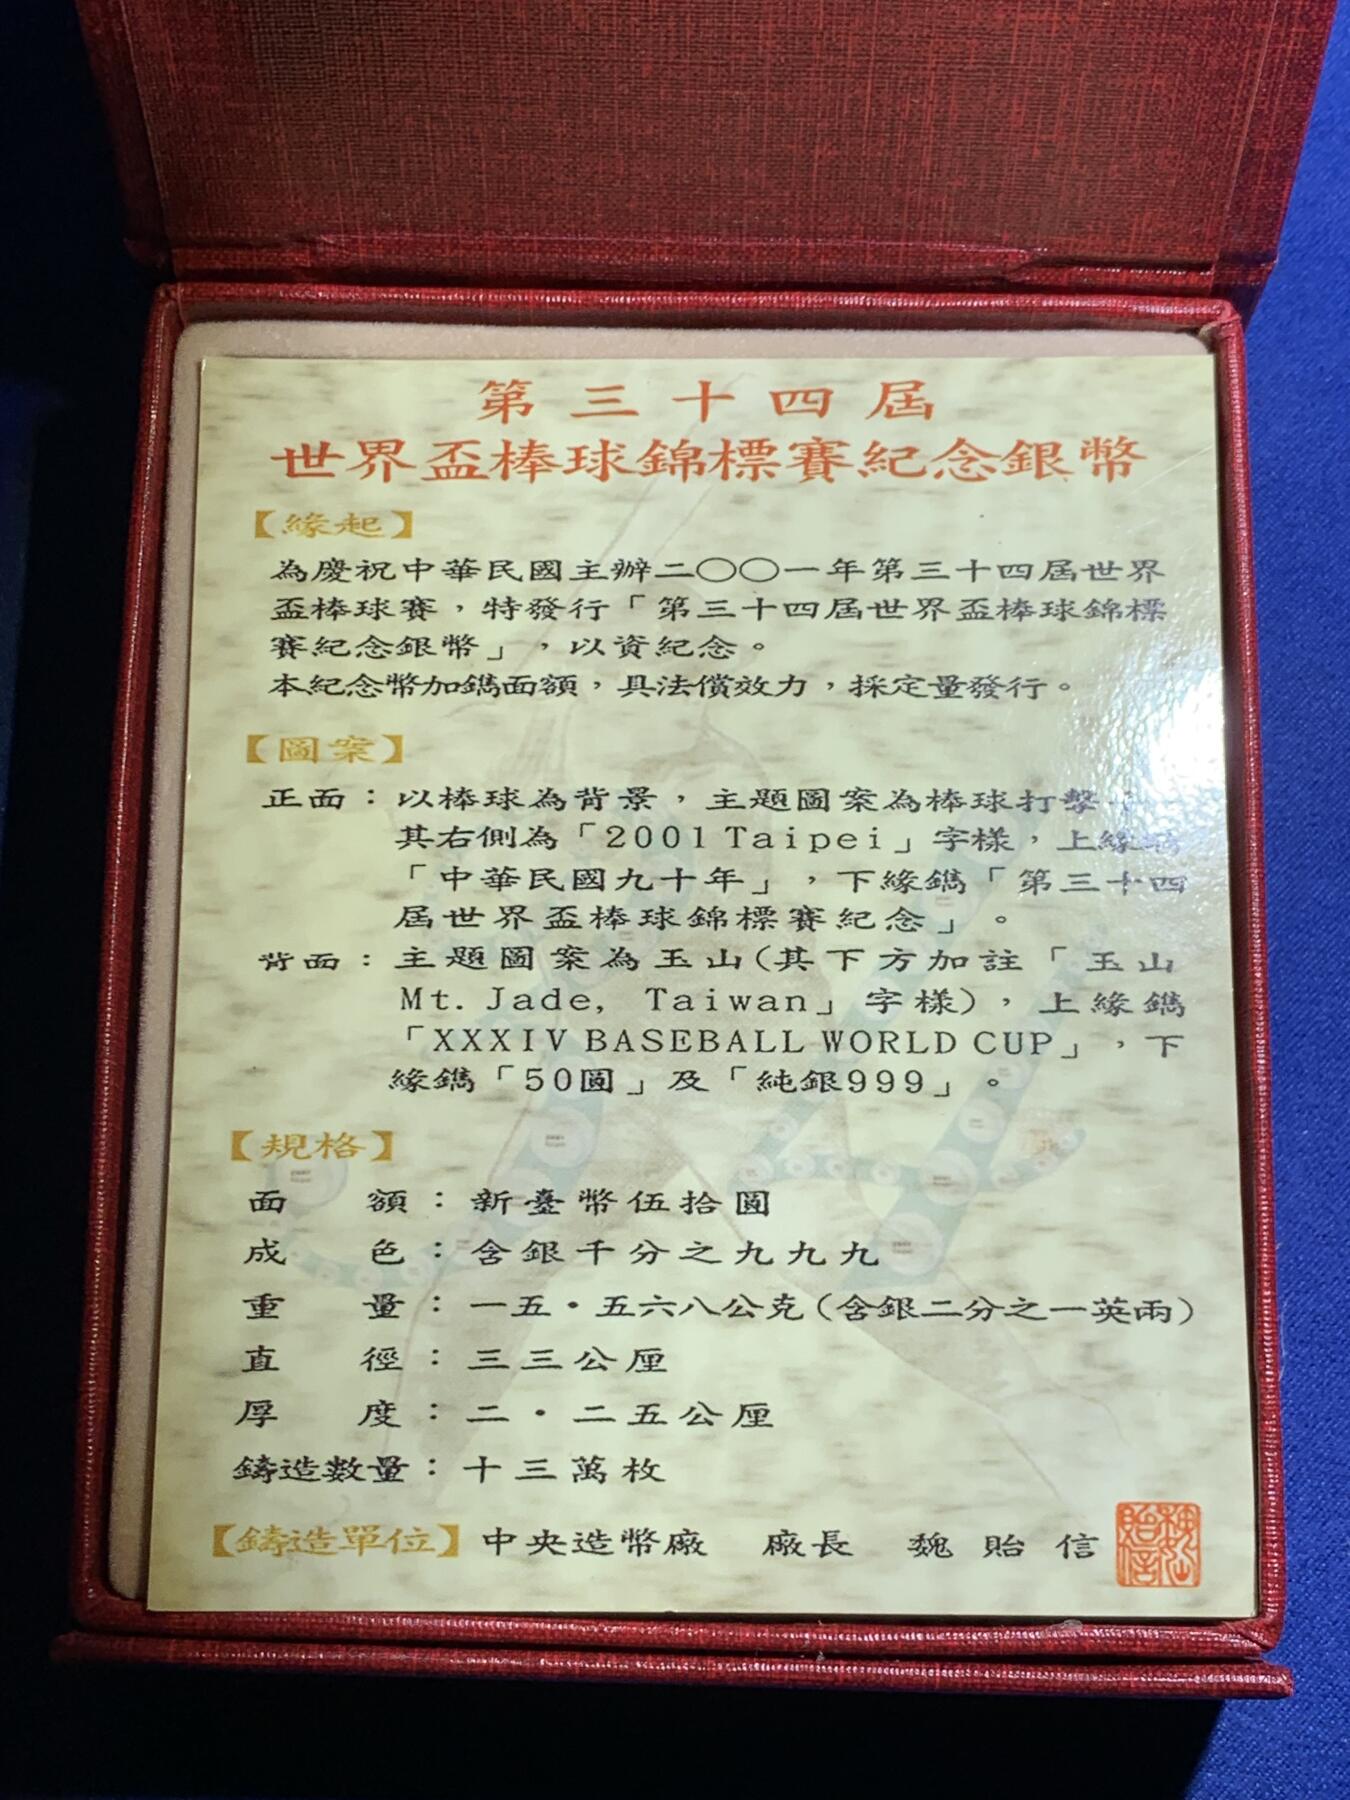 第三十四屆
世界盃棒球錦標賽紀念銀幣
【緣起】
為慶祝中華民國主辦二〇〇一年第三十四屆世界
盃棒球賽，特發行「第三十四屆世界盃棒球錦標
賽紀念銀幣」，以資紀念。
本紀念幣加鐫面額，具法償效力，採定量發行。
【圖案】
正面：以棒球為背景，主題圖案為棒球打擊
其右側為「2001 Taipei」字樣，上緣鐫
「中華民國九十年」，下緣鐫「第三十四
屆世界盃棒球錦標賽紀念」。
背面：主題圖案為玉山（其下方加註「玉山
Mt. Jade, Taiwan」字樣），上緣鐫
「XXXIV BASEBALL WORLD CUP」，下
緣鐫「50圓」及「純銀999」。
【規格】
面額：新臺幣伍拾圓
成色：含銀千分之九九九
重量：一五·五六八公克（含銀二分之一英兩）
直徑：三三公厘
厚度：二·二五公厘
鑄造數量：十三萬枚
【鑄造單位】中央造幣廠 廠長 魏貽信